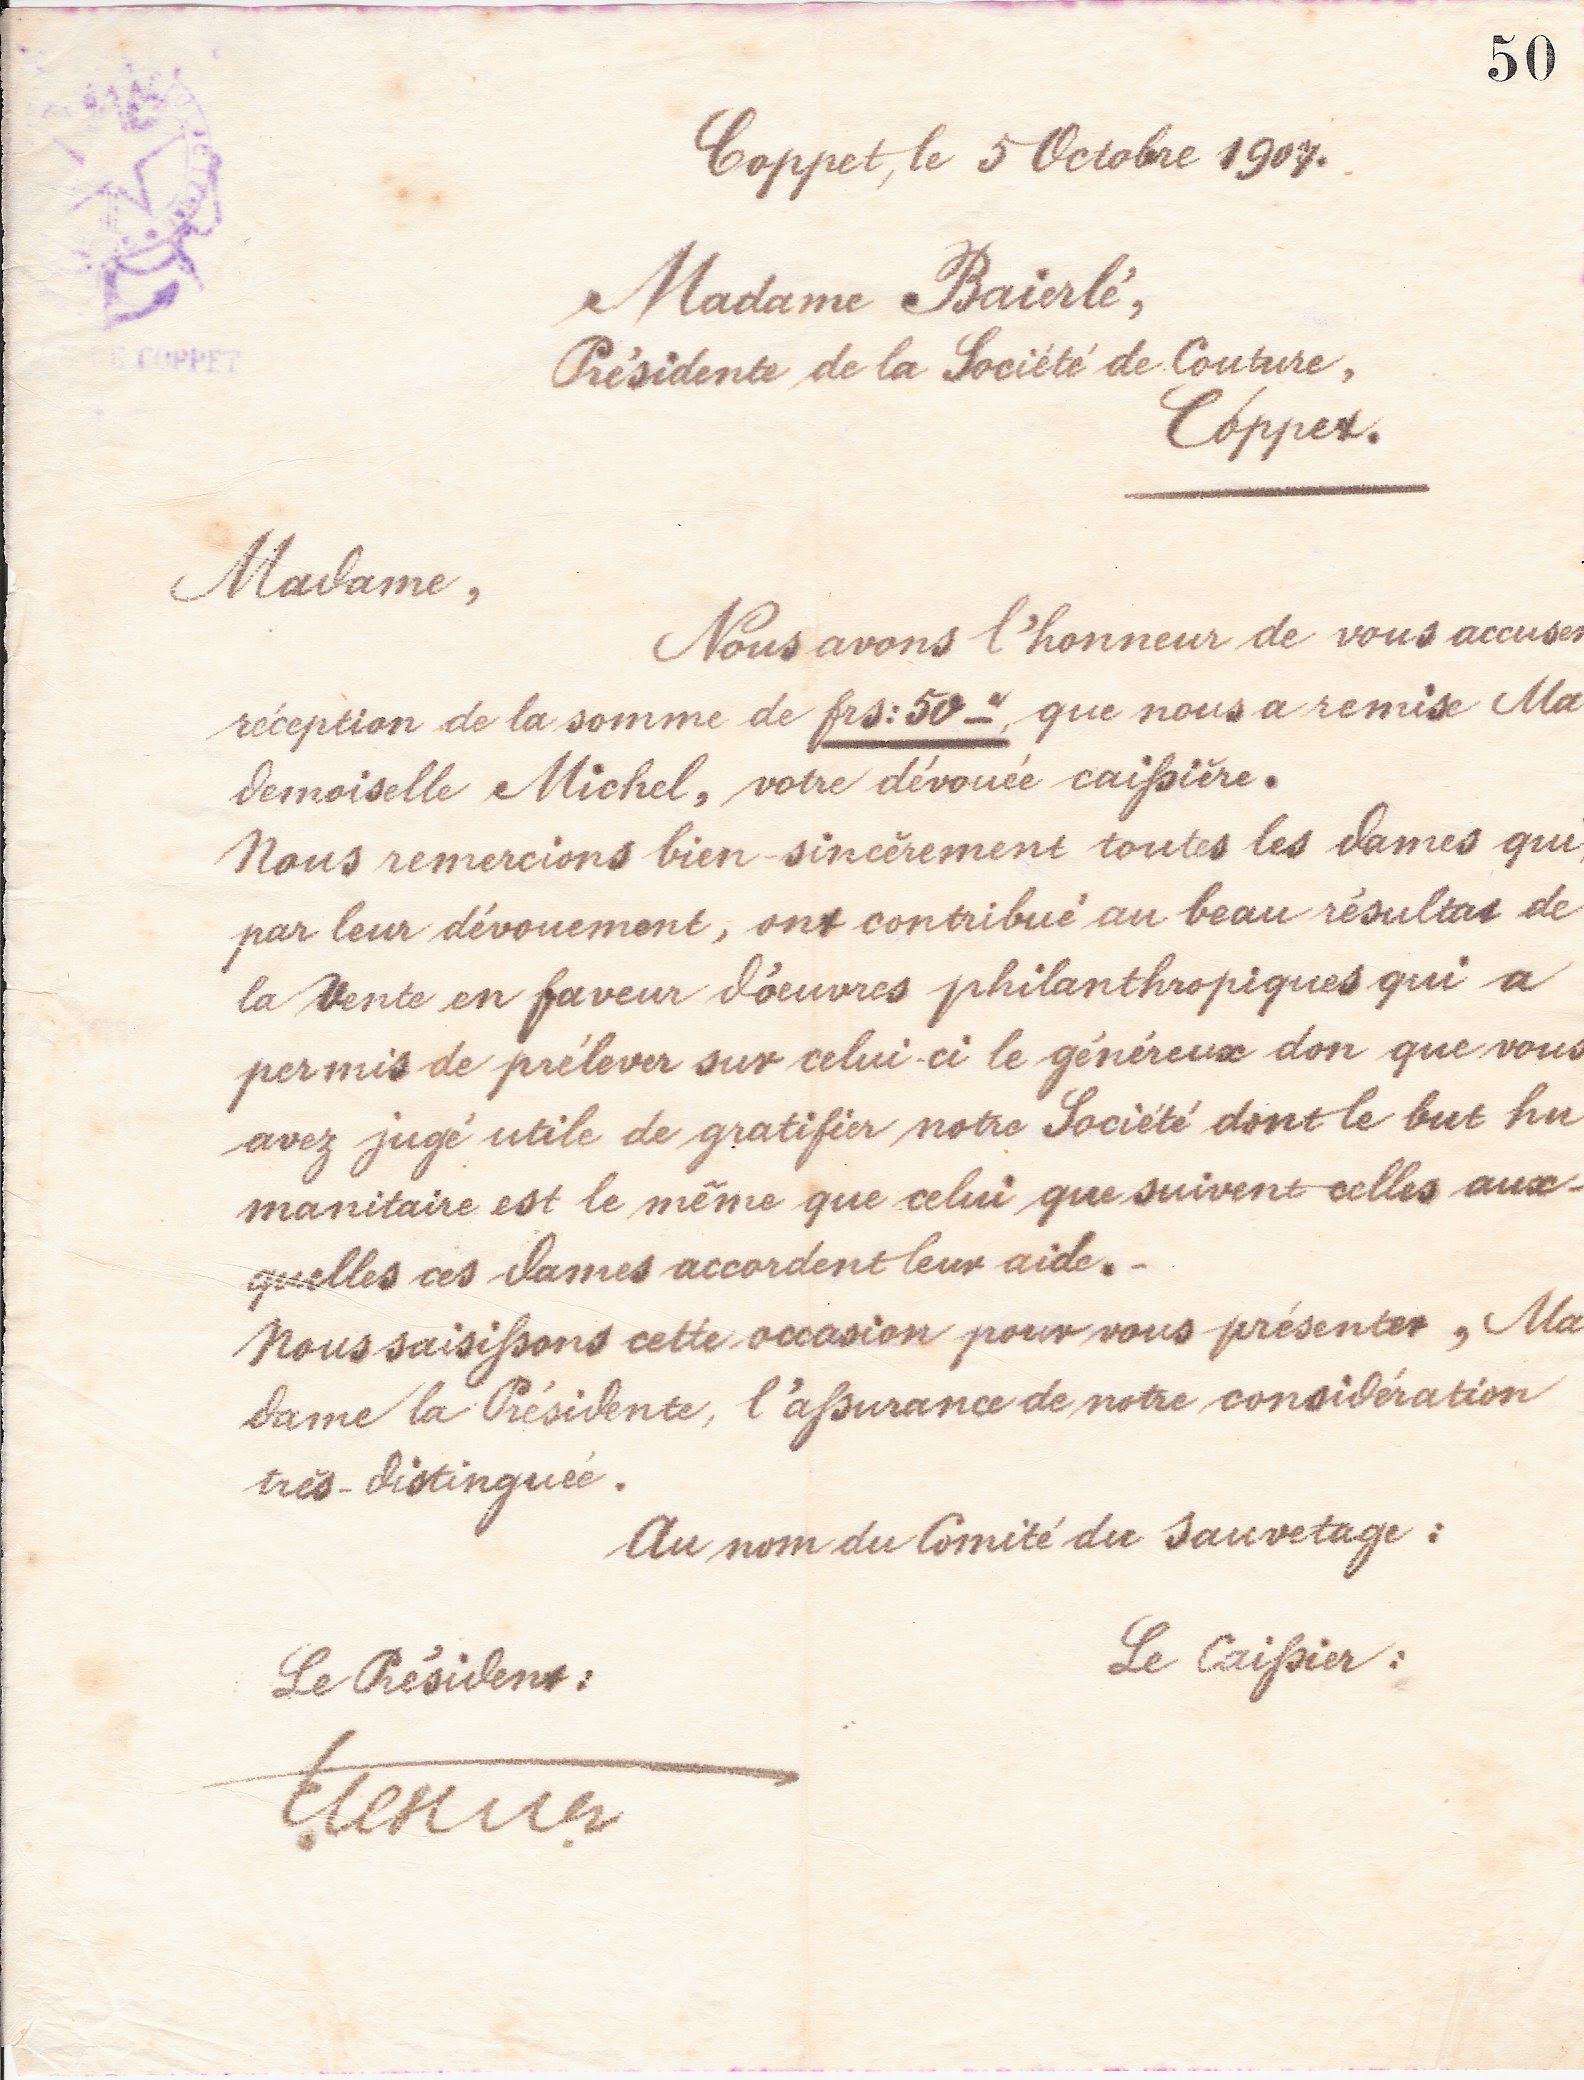 50
Coppet, le 5 Octobre 1907.
Madame Baierlé,
Présidente de la Société de Couture,
Coppet.
Madame,
Nous avons l'honneur de vous accuser
réception de la somme de frs: 50 –", que nous a remise Ma
demoiselle Michel, votre dévouée caissière.
Nous remercions bien sincèrement toutes les dames qui,
par leur dévouement, ont contribué au beau résultat de
la Vente en faveur d'oeuvres philanthropiques qui a
permis de prélever sur celui-ci le généreux don que vous
avez jugé utile de gratifier notre Société dont le but hu
manitaire est le même que celui que suivent celles aux-
quelles ces dames accordent leur aide.-
Nous saisissons cette occasion pour vous présenter, Ma
dame la Présidente, l'assurance de notre considération
très-distinguée.
Au nom du Comité du Sauvetage :
Le Caissier :
Le Président :
COPPET